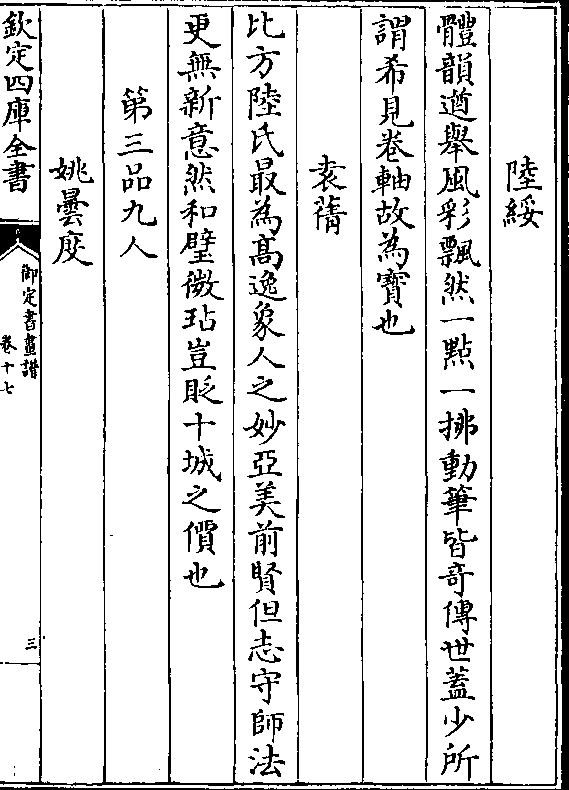 陸綏
體韻遒舉風彩飄然一點一拂動筆皆奇傳世蓋少所
謂希見卷軸故為寶也
袁蒨
比方陸氏最為髙逸象人之妙亞美前賢但志守師法
更無新意然和璧微玷豈貶十城之價也
第三品九人
姚曇度
欽定四庫全書
御定書畫譜
卷十七
三